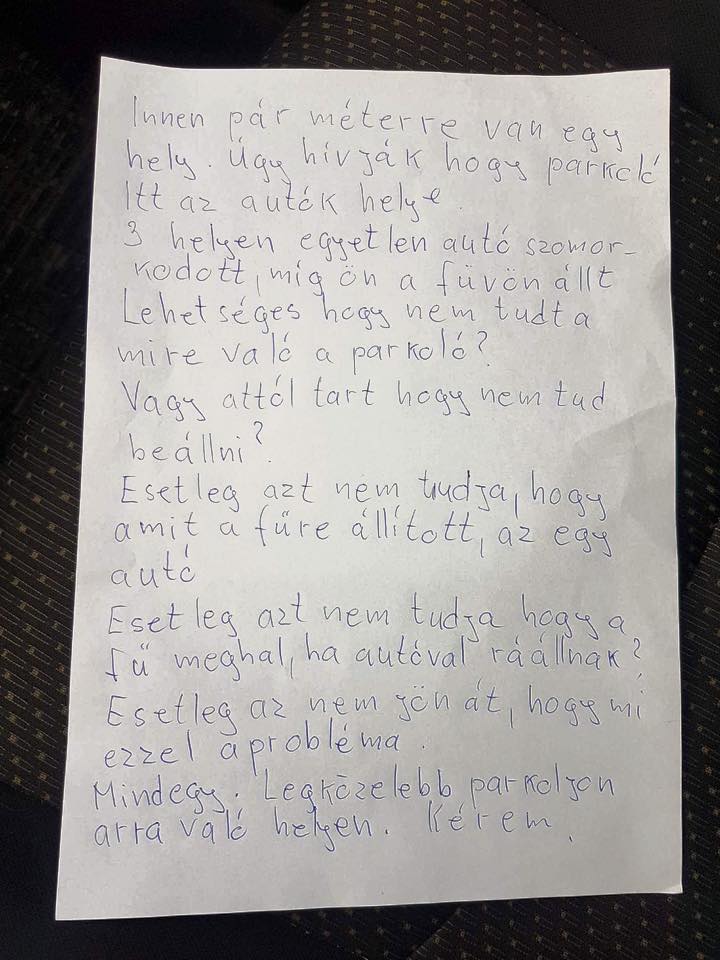 Innen pár méterre van egy
hely. Úgy hívják hogy parkoló
Itt az autók helye.
3 helyen egyetlen autó szomor-
kodott, míg ön a füvön állt
Lehetséges hogy nem tudta
mire való a parkoló?
Vagy attól tart hogy nem tud
beállni?
Esetleg azt nem tudja, hogy
amit a fűre állított, az egy
autó
Esetleg azt nem tudja hogy a
fű meghal, ha autóval ráállnak?
Esetleg az nem jön át, hogy mi
ezzel a probléma.
Mindegy. Legközelebb parkoljon
arra való helyen. Kérem.